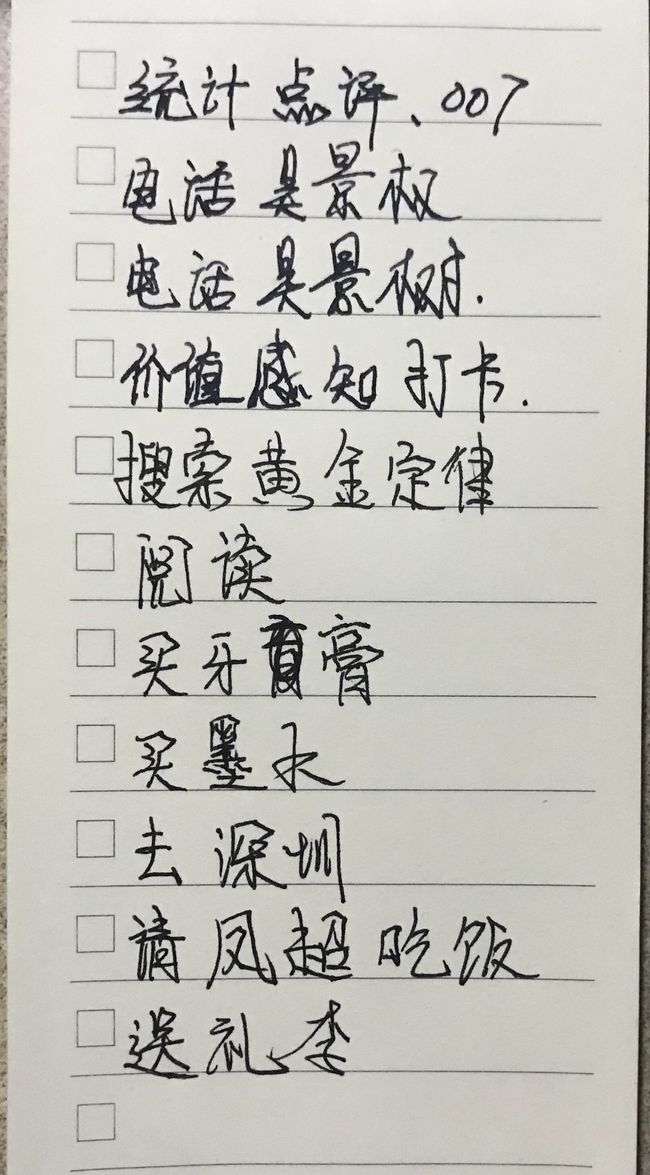 统计点评、007
电话吴景权
电话吴景树.
价值感知打卡.
搜索黄金定律
阅读
买牙膏
买墨水
去深圳
请凤超吃饭
送礼李